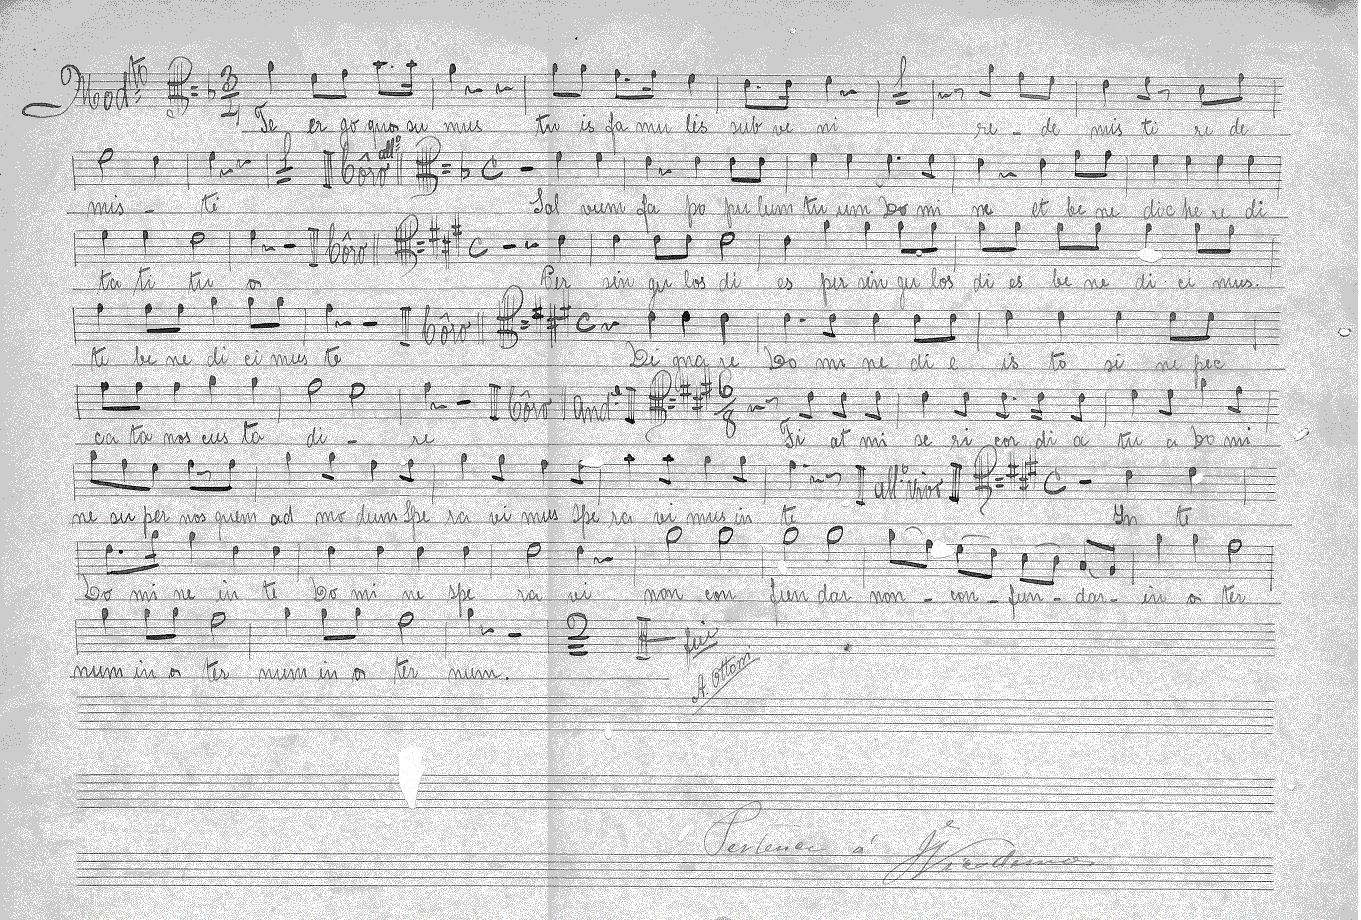 Modto 3/4
Te er go quos su mus tu is fa mu lis sub ve ni re - de mis ti re de
Côro allo C
mis - ti Sal vum fa po pu lum tu um Do mi ne et be ne dic he re di
Côro C
ta ti tu o Per sin gu los di es per sin gu los di es be ne di ci mus.
Côro C
te be ne di ci mus te Di gna re Do mi ne di e is to si ne pec
Côro Ande 6/8
ca ta nos cus to di - re Fi at mi se ri cor di a tu a Do mi
allo vivo C
ne su per nos quem ad mo dum Spe ra vi mus Spe ra vi mus in te Yn te
Do mi ne in te Do mi ne spe ra vi non con fun dar non - con - fun - dar - in o ter
fim
num in o ter num in o ter num.
A. Ottom
Pertence á